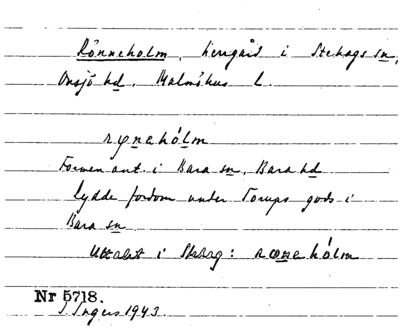 Rönneholm, herrgård i Stehags sn,
Onsjö hd, Malmöhus l.
Formen ant. i Bara sn, Bara hd
lydde fordom under Torups gods i
Bara sn
Uttalet i Stehag:
Nr 5718.
J. Ingers 1943.